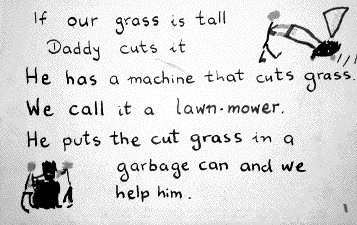 If our grass is tall
Daddy cuts it
He has a machine that cuts grass.
We call it a lawn-mower.
He puts the cut grass in a
garbage can and we
help him.